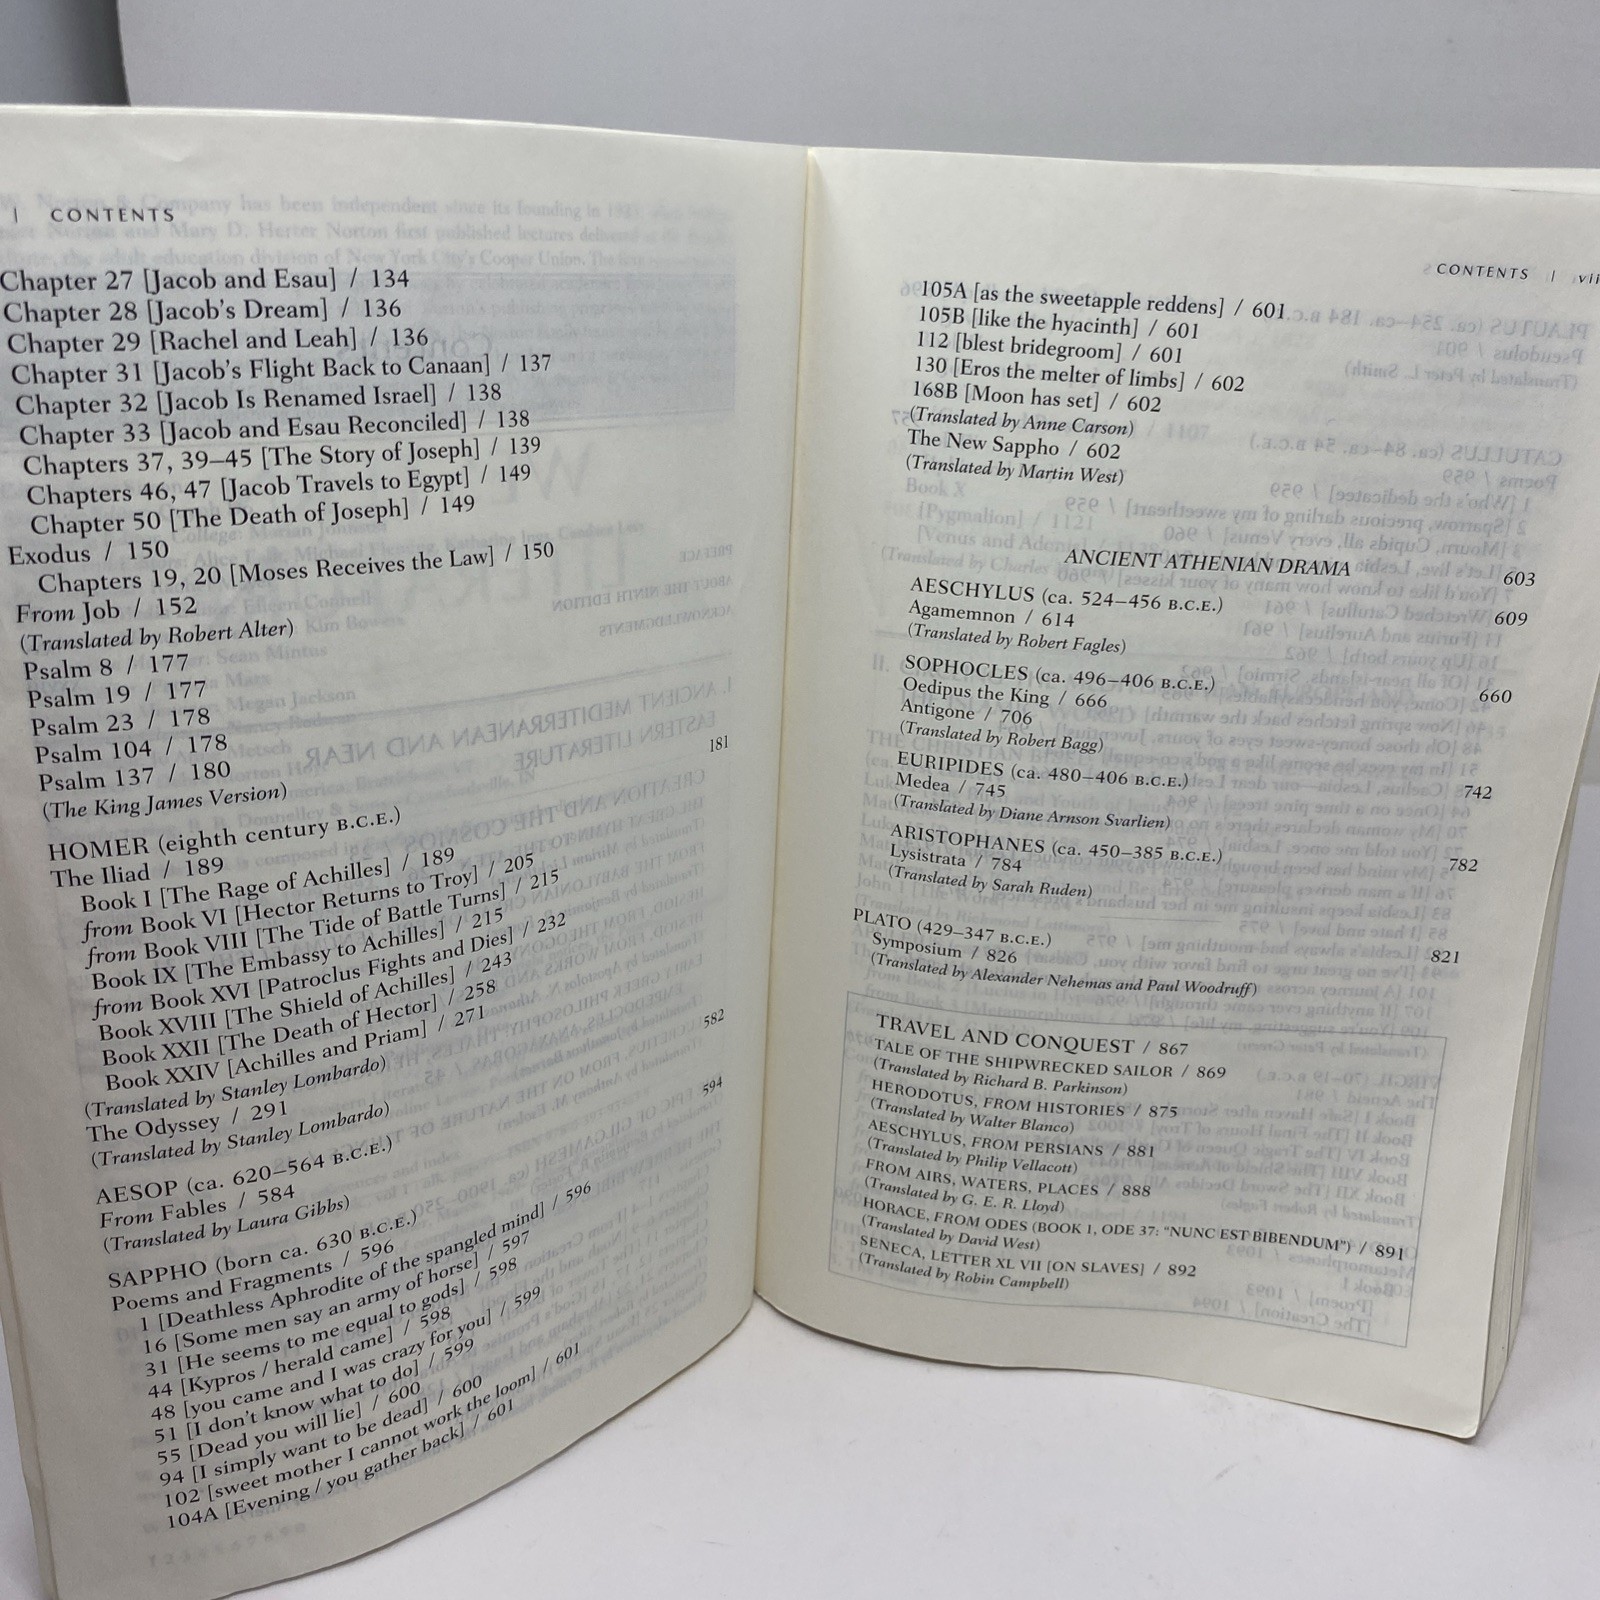 | CONTENTS
Chapter 27 [Jacob and Esau] / 134
Chapter 28 [Jacob's Dream] / 136
Chapter 29 [Rachel and Leah] / 136
Chapter 31 [Jacob's Flight Back to Canaan] / 137
Chapter 32 [Jacob Is Renamed Israel] / 138
Chapter 33 [Jacob and Esau Reconciled] / 138
Chapters 37, 39–45 [The Story of Joseph] / 139
Chapters 46, 47 [Jacob Travels to Egypt] / 149
Chapter 50 [The Death of Joseph] / 149
Exodus / 150
Chapters 19, 20 [Moses Receives the Law] / 150
From Job / 152
(Translated by Robert Alter)
Psalm 8 / 177
Psalm 19 / 177
Psalm 23 / 178
Psalm 104 / 178
Psalm 137 / 180
(The King James Version)
HOMER (eighth century B.C.E.) 181
The Iliad / 189
Book I [The Rage of Achilles] / 189
from Book VI [Hector Returns to Troy] / 205
from Book VIII [The Tide of Battle Turns] / 215
Book IX [The Embassy to Achilles] / 215
from Book XVI [Patroclus Fights and Dies] / 232
Book XVIII [The Shield of Achilles] / 243
Book XXII [The Death of Hector] / 258
Book XXIV [Achilles and Priam] / 271
(Translated by Stanley Lombardo)
The Odyssey / 291
(Translated by Stanley Lombardo)
AESOP (ca. 620–564 B.C.E.) 582
From Fables / 584
(Translated by Laura Gibbs)
SAPPHO (born ca. 630 B.C.E.) 594
Poems and Fragments / 596
1 [Deathless Aphrodite of the spangled mind] / 596
16 [Some men say an army of horse] / 597
31 [He seems to me equal to gods] / 598
44 [Kypros / herald came] / 598
48 [you came and I was crazy for you] / 599
51 [I don't know what to do] / 599
55 [Dead you will lie] / 600
94 [I simply want to be dead] / 600
102 [sweet mother I cannot work the loom] / 601
104A [Evening / you gather back] / 601
CONTENTS | vii
105A [as the sweetapple reddens] / 601
105B [like the hyacinth] / 601
112 [blest bridegroom] / 601
130 [Eros the melter of limbs] / 602
168B [Moon has set] / 602
(Translated by Anne Carson)
The New Sappho / 602
(Translated by Martin West)
ANCIENT ATHENIAN DRAMA 603
AESCHYLUS (ca. 524–456 B.C.E.) 609
Agamemnon / 614
(Translated by Robert Fagles)
SOPHOCLES (ca. 496–406 B.C.E.) 660
Oedipus the King / 666
Antigone / 706
(Translated by Robert Bagg)
EURIPIDES (ca. 480–406 B.C.E.) 742
Medea / 745
(Translated by Diane Arnson Svarlien)
ARISTOPHANES (ca. 450–385 B.C.E.) 782
Lysistrata / 784
(Translated by Sarah Ruden)
PLATO (429–347 B.C.E.) 821
Symposium / 826
(Translated by Alexander Nehemas and Paul Woodruff)
TRAVEL AND CONQUEST / 867
TALE OF THE SHIPWRECKED SAILOR / 869
(Translated by Richard B. Parkinson)
HERODOTUS, FROM HISTORIES / 875
(Translated by Walter Blanco)
AESCHYLUS, FROM PERSIANS / 881
(Translated by Philip Vellacott)
FROM AIRS, WATERS, PLACES / 888
(Translated by G. E. R. Lloyd)
HORACE, FROM ODES (BOOK 1, ODE 37: "NUNC EST BIBENDUM") / 891
(Translated by David West)
SENECA, LETTER XL VII [ON SLAVES] / 892
(Translated by Robin Campbell)